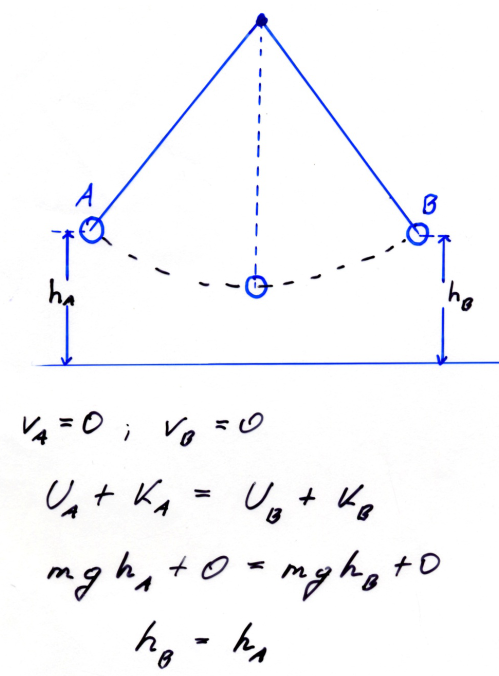 A
B
h_A
h_B
v_A = 0 ; v_B = 0
U_A + K_A = U_B + K_B
mgh_A + 0 = mgh_B + 0
h_B = h_A